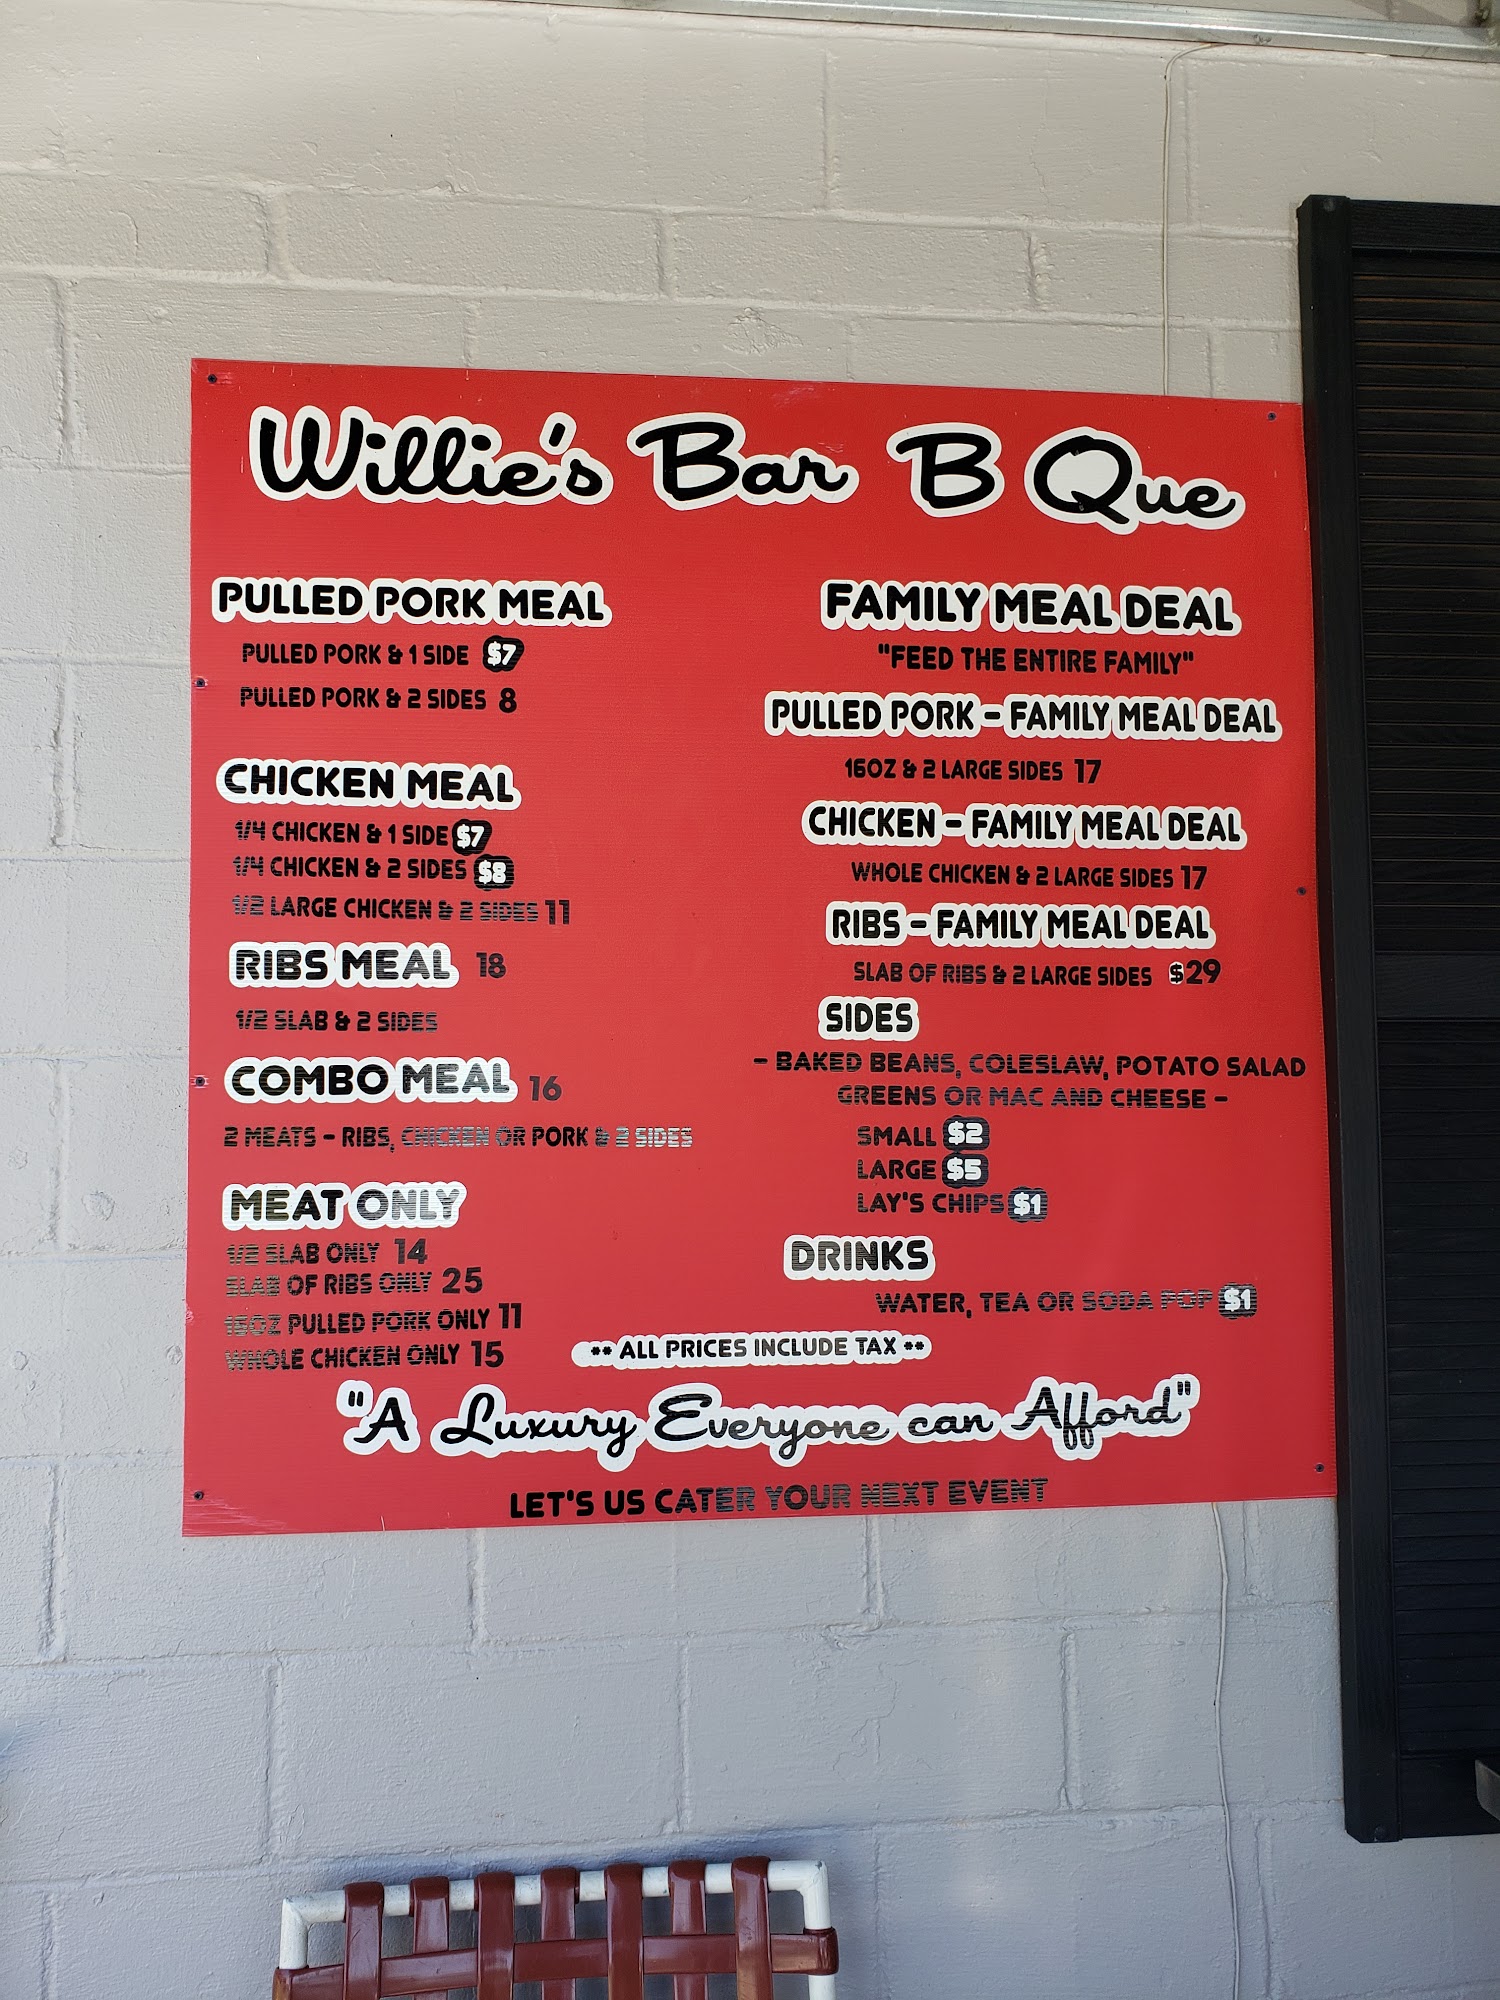 Willie's Bar B Que
PULLED PORK MEAL
PULLED PORK & 1 SIDE $7
PULLED PORK & 2 SIDES 8
CHICKEN MEAL
1/4 CHICKEN & 1 SIDE $7
1/4 CHICKEN & 2 SIDES $8
1/2 LARGE CHICKEN & 2 SIDES 11
RIBS MEAL 18
1/2 SLAB & 2 SIDES
COMBO MEAL 16
2 MEATS - RIBS, CHICKEN OR PORK & 2 SIDES
MEAT ONLY
1/2 SLAB ONLY 14
SLAB OF RIBS ONLY 25
16OZ PULLED PORK ONLY 11
WHOLE CHICKEN ONLY 15
FAMILY MEAL DEAL
"FEED THE ENTIRE FAMILY"
PULLED PORK - FAMILY MEAL DEAL
16OZ & 2 LARGE SIDES 17
CHICKEN - FAMILY MEAL DEAL
WHOLE CHICKEN & 2 LARGE SIDES 17
RIBS - FAMILY MEAL DEAL
SLAB OF RIBS & 2 LARGE SIDES $29
SIDES
- BAKED BEANS, COLESLAW, POTATO SALAD
GREENS OR MAC AND CHEESE -
SMALL $2
LARGE $5
LAY'S CHIPS $1
DRINKS
WATER, TEA OR SODA POP $1
** ALL PRICES INCLUDE TAX **
"A Luxury Everyone can Afford"
LET'S US CATER YOUR NEXT EVENT